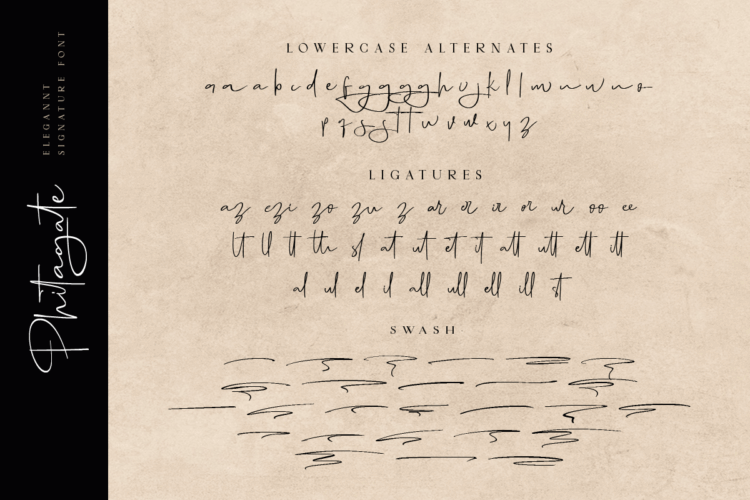 Phitagate
ELEGANNT
SIGNATURE FONT
LOWERCASE ALTERNATES
a a a b c d e f g g g g g h o j k l l m n w n o
p z s s t t w v w x y z
LIGATURES
az ezi zo zu z ar er ir or ur oo ee
lt ll tt th sf at ut et it att utt ett itt
al ul el il all ull ell ill st
SWASH